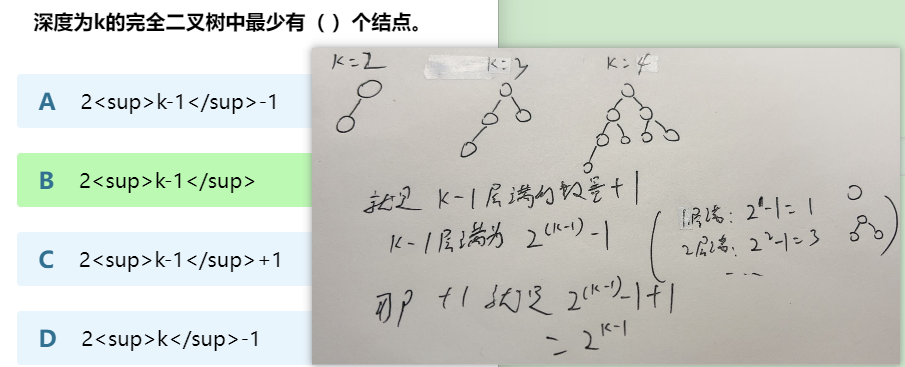 深度为k的完全二叉树中最少有（ ）个结点。
A 2<sup>k-1</sup>-1
B 2<sup>k-1</sup>
C 2<sup>k-1</sup>+1
D 2<sup>k</sup>-1
k=2 k=3 k=4
就是 K-1层满的数量+1
K-1层满为 2^(K-1)-1
(1层满: 2^1-1=1
2层满: 2^2-1=3
...)
即 +1 就是 2^(K-1)-1+1
= 2^K-1